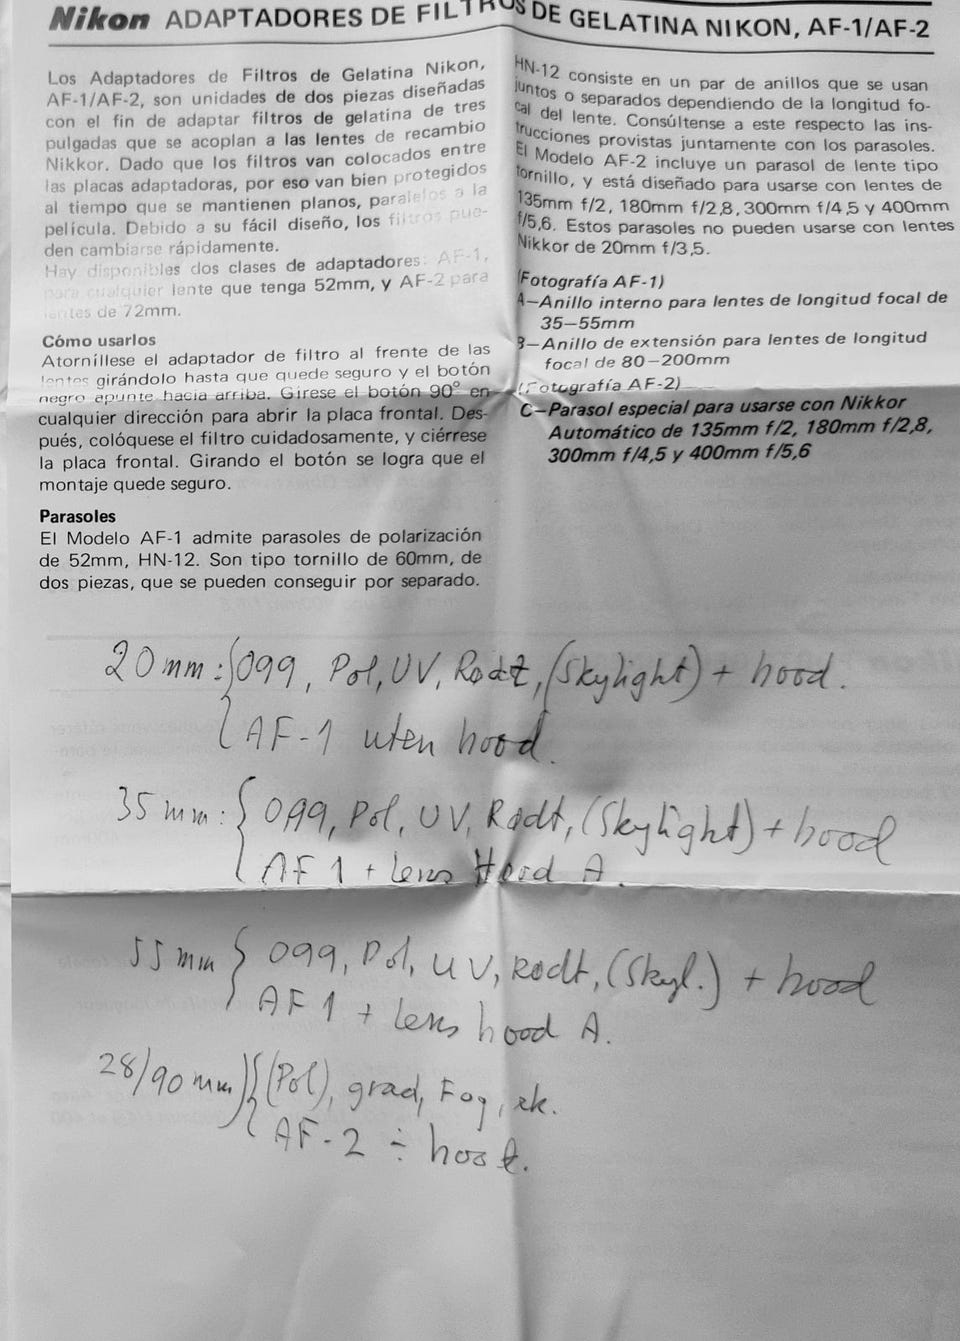 Nikon ADAPTADORES DE FILTROS DE GELATINA NIKON, AF-1/AF-2
Los Adaptadores de Filtros de Gelatina Nikon,
AF-1/AF-2, son unidades de dos piezas diseñadas
con el fin de adaptar filtros de gelatina de tres
pulgadas que se acoplan a las lentes de recambio
Nikkor. Dado que los filtros van colocados entre
las placas adaptadoras, por eso van bien protegidos
al tiempo que se mantienen planos, paralelos a la
película. Debido a su fácil diseño, los filtros pue-
den cambiarse rápidamente.
Hay disponibles dos clases de adaptadores: AF-1,
para cualquier lente que tenga 52mm, y AF-2 para
lentes de 72mm.
Cómo usarlos
Atorníllese el adaptador de filtro al frente de las
lentes girándolo hasta que quede seguro y el botón
negro apunte hacia arriba. Gírese el botón 90° en
cualquier dirección para abrir la placa frontal. Des-
pués, colóquese el filtro cuidadosamente, y ciérrese
la placa frontal. Girando el botón se logra que el
montaje quede seguro.
Parasoles
El Modelo AF-1 admite parasoles de polarización
de 52mm, HN-12. Son tipo tornillo de 60mm, de
dos piezas, que se pueden conseguir por separado.
HN-12 consiste en un par de anillos que se usan
juntos o separados dependiendo de la longitud fo-
cal del lente. Consúltense a este respecto las ins-
trucciones provistas juntamente con los parasoles.
El Modelo AF-2 incluye un parasol de lente tipo
tornillo, y está diseñado para usarse con lentes de
135mm f/2, 180mm f/2,8, 300mm f/4,5 y 400mm
f/5,6. Estos parasoles no pueden usarse con lentes
Nikkor de 20mm f/3,5.
(Fotografía AF-1)
A—Anillo interno para lentes de longitud focal de
35—55mm
B—Anillo de extensión para lentes de longitud
focal de 80—200mm
(Fotografía AF-2)
C—Parasol especial para usarse con Nikkor
Automático de 135mm f/2, 180mm f/2,8,
300mm f/4,5 y 400mm f/5,6
20mm: { 099, Pol, UV, Rødt, (Skylight) + hood.
AF-1 uten hood.
35mm: { 099, Pol, UV, Rødt, (Skylight) + hood
AF 1 + Lens Hood A.
55mm } 099, Pol, UV, Rødt, (Skyl.) + hood
AF 1 + Lens hood A.
28/90mm } { (Pol), grad, Fog,
AF-2 ÷